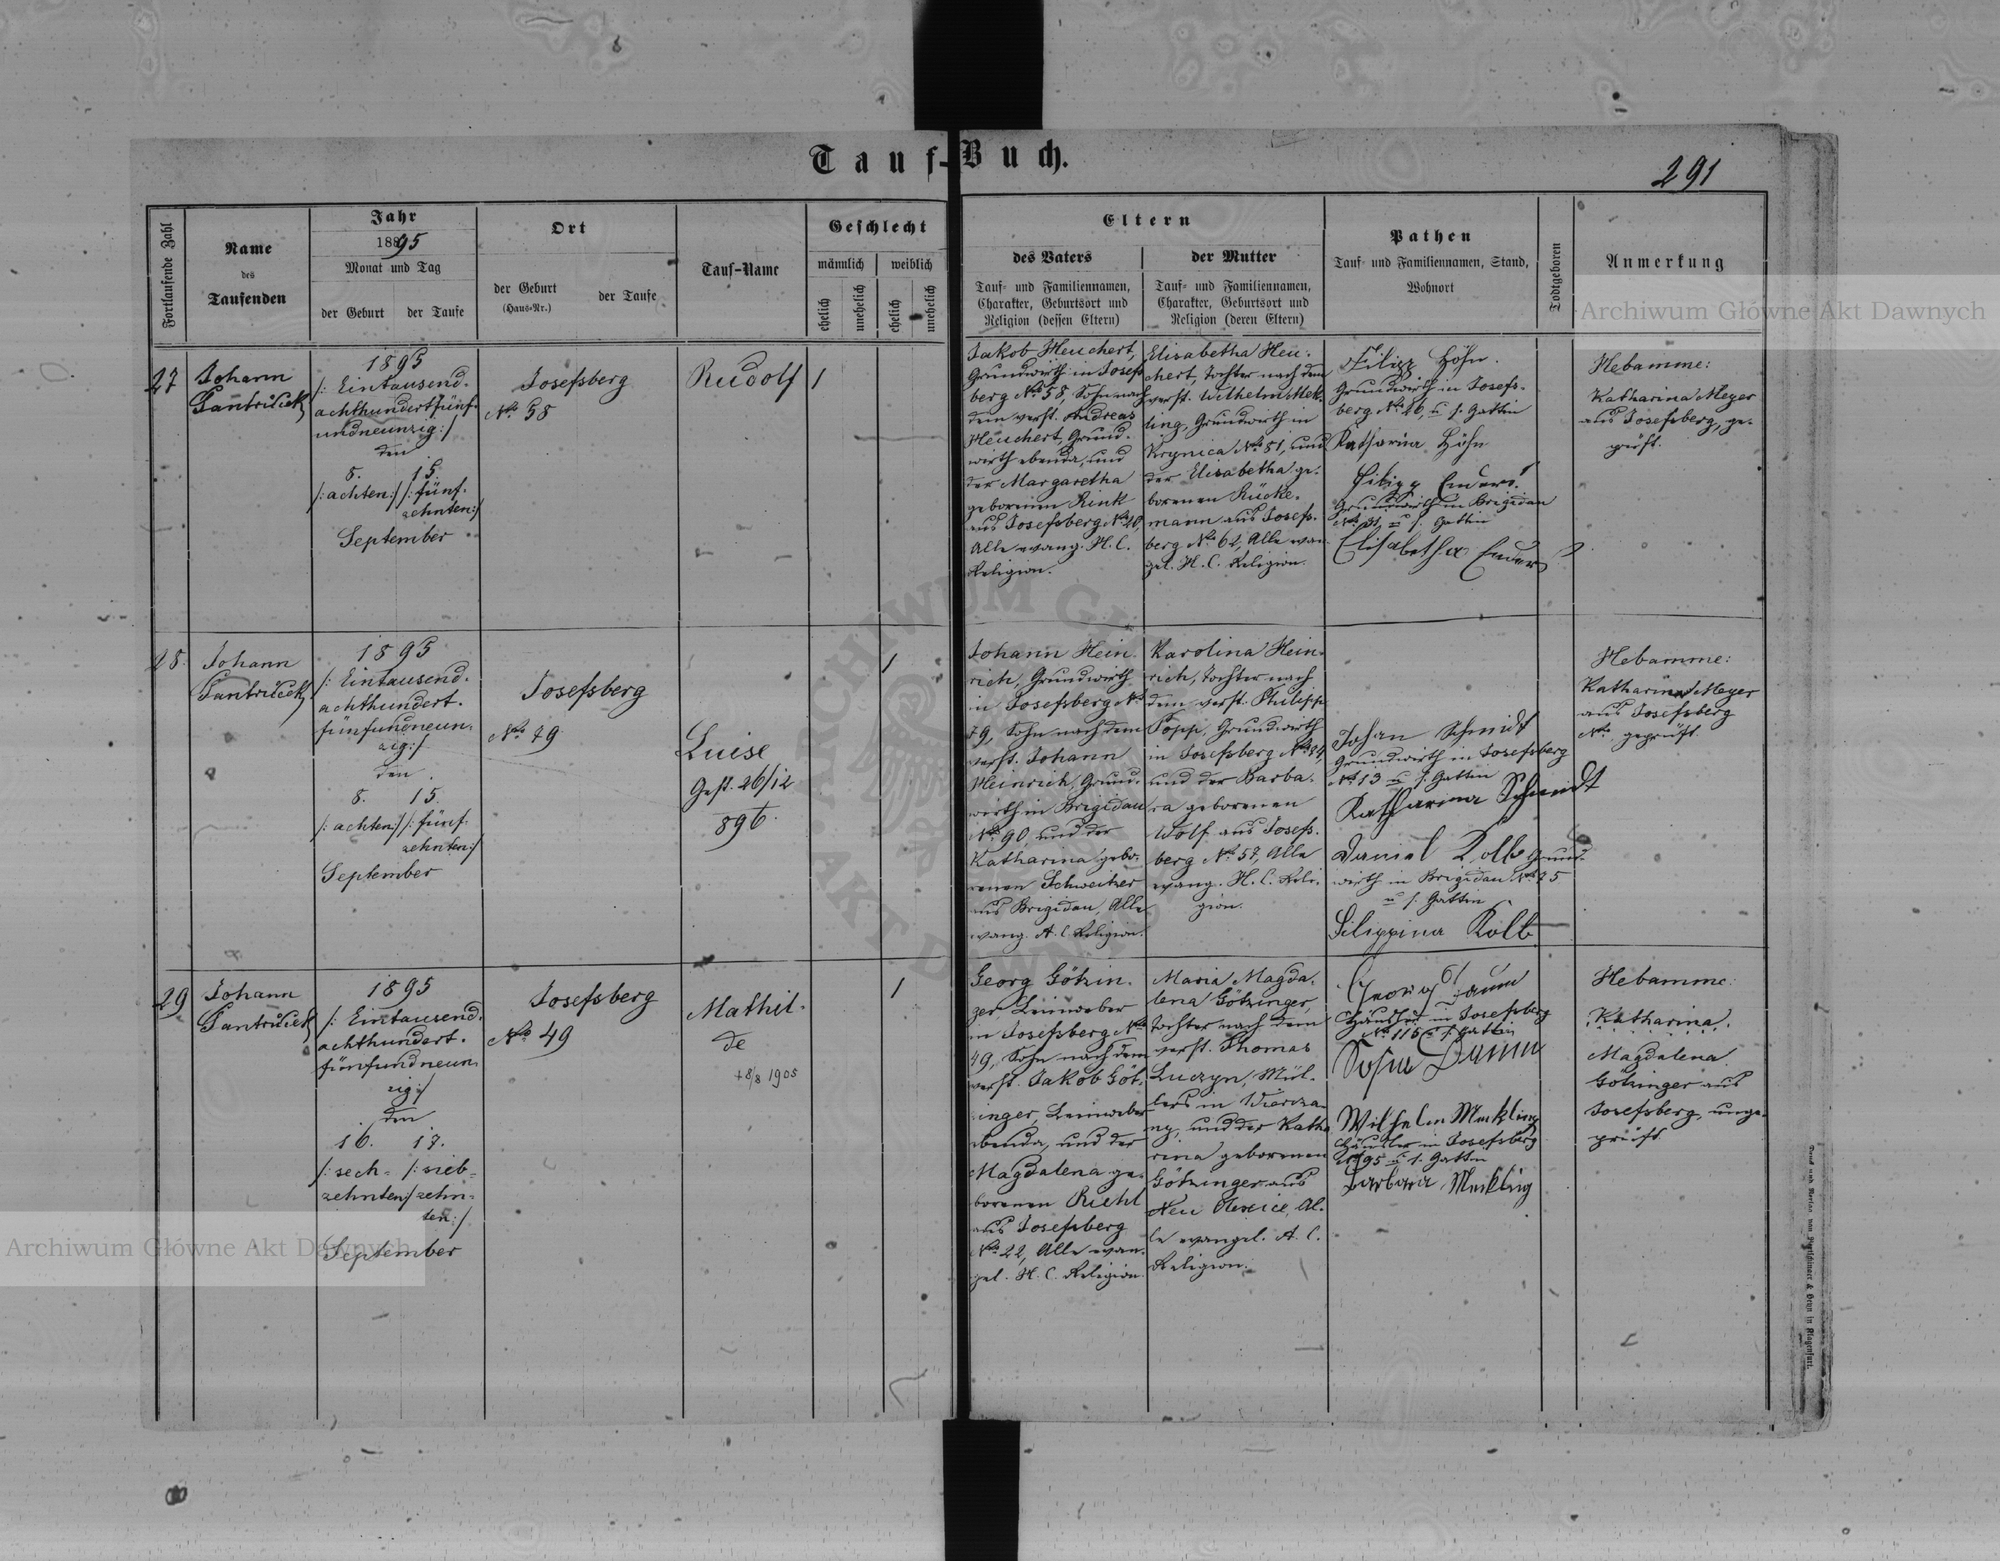 Tauf-Buch.
291
Fortlaufende Zahl
Name
des
Taufenden
Jahr
1895
Monat und Tag
der Geburt
der Taufe
Ort
der Geburt
(Haus-Nr.)
der Taufe
Tauf-Name
Geschlecht
männlich
weiblich
ehelich
unehelich
ehelich
unehelich
Eltern
des Vaters
Tauf- und Familiennamen,
Charakter, Geburtsort und
Religion (dessen Eltern)
der Mutter
Tauf- und Familiennamen,
Charakter, Geburtsort und
Religion (deren Eltern)
Pathen
Tauf- und Familiennamen, Stand,
Wohnort
Todtgeboren
Anmerkung
27
Johann
1895
/: Eintausend-
achthundertfünf-
undneunzig :/
den
8. 15.
/: achten :/ /: fünf-
zehnten :/
September
Josefsberg
No 58
Rudolf
1
Jakob Heuchert,
Grundwirth in Josefs
berg No 58, Sohn nach
dem verst. Andreas
Heuchert, Grund-
wirth ebenda, und
der Margaretha
geborenen Rink
aus Josefsberg No 20,
Alle evang. H. C.
Religion.
Elisabetha Heu-
chert, Tochter nach dem
verst. Wilhelm Mek-
ling, Grundwirth in
Krynica No 51, und
der Elisabetha ge-
borenen Rücke-
mann aus Josefs-
berg No 62, Alle evan
gel. H. C. Religion.
Filipp Höhn
Grundwirth in Josefs-
berg No 26, u s. Gattin
Katharina Höhn
Filipp Enders
Grundwirth in Brigidau
No 31, u s. Gattin
Elisabetha Enders
Hebamme:
Katharina Meyer
aus Josefsberg, ge-
prüft.
28.
Johann
1895
/: Eintausend-
achthundert-
fünfundneun-
zig :/
den
8. 15.
/: achten :/ /: fünf-
zehnten :/
September
Josefsberg
No 79
Luise
Gest. 26/12
896.
1
Johann Hein-
rich, Grundwirth
in Josefsberg No
79, Sohn nach dem
verst. Johann
Heinrich, Grund-
wirth in Brigidau
No 90, und der
Katharina gebo-
renen Schweitzer
aus Brigidau, Alle
evang. H. C. Religion.
Karolina Hein-
rich, Tochter nach
dem verst. Philipp
Popp, Grundwirth
in Josefsberg No 84,
und der Barba-
ra geborenen
Wolf aus Josefs-
berg No 57, Alle
evang. H. C. Reli-
gion.
Johan Schmidt
Grundwirth in Josefsberg
No 13 u s. Gattin
Katharina Schmidt
Daniel Kolb Grund-
wirth in Brigidau No 75
u s. Gattin
Filippina Kolb
Hebamme:
Katharina Meyer
aus Josefsberg
No geprüft.
29
Johann
1895
/: Eintausend-
achthundert-
fünfundneun-
zig :/
den
16. 17.
/: sech- /: sieb-
zehnten :/ zehn-
ten :/
September
Josefsberg
No 49
Mathil-
de
+ 8/8 1905
1
Georg Götzin-
ger Leinweber
in Josefsberg No
49, Sohn nach dem
verst. Jakob Göt-
zinger, Leinweber
ebenda, und der
Magdalena ge-
borenen Riehl
aus Josefsberg
No 22, Alle evan-
gel. H. C. Religion.
Maria Magda-
lena Götzinger,
Tochter nach dem
verst. Thomas
Luczyn, Mül-
lers in
und der Katha
rina geborenen
Götzinger aus
Neu Olexice, Al-
le evangel. A. C.
Religion.
Georg Daum
Häusler in Josefsberg
No 115 u s. Gattin
Sofia Daum
Wilhelm Mekling
Häusler in Josefsberg
No 95 u s. Gattin
Barbara Mekling
Hebamme:
Katharina
Magdalena
Götzinger aus
Josefsberg, unge-
prüft.
Archiwum Główne Akt Dawnych
Archiwum Główne Akt Dawnych